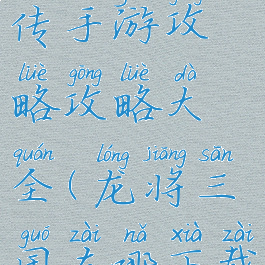 传手游攻
lüè gōng lüè dà
略攻略大
quán lóng jiāng sān
全(龙将三
guó zài nǎ xià zài
国在哪下载